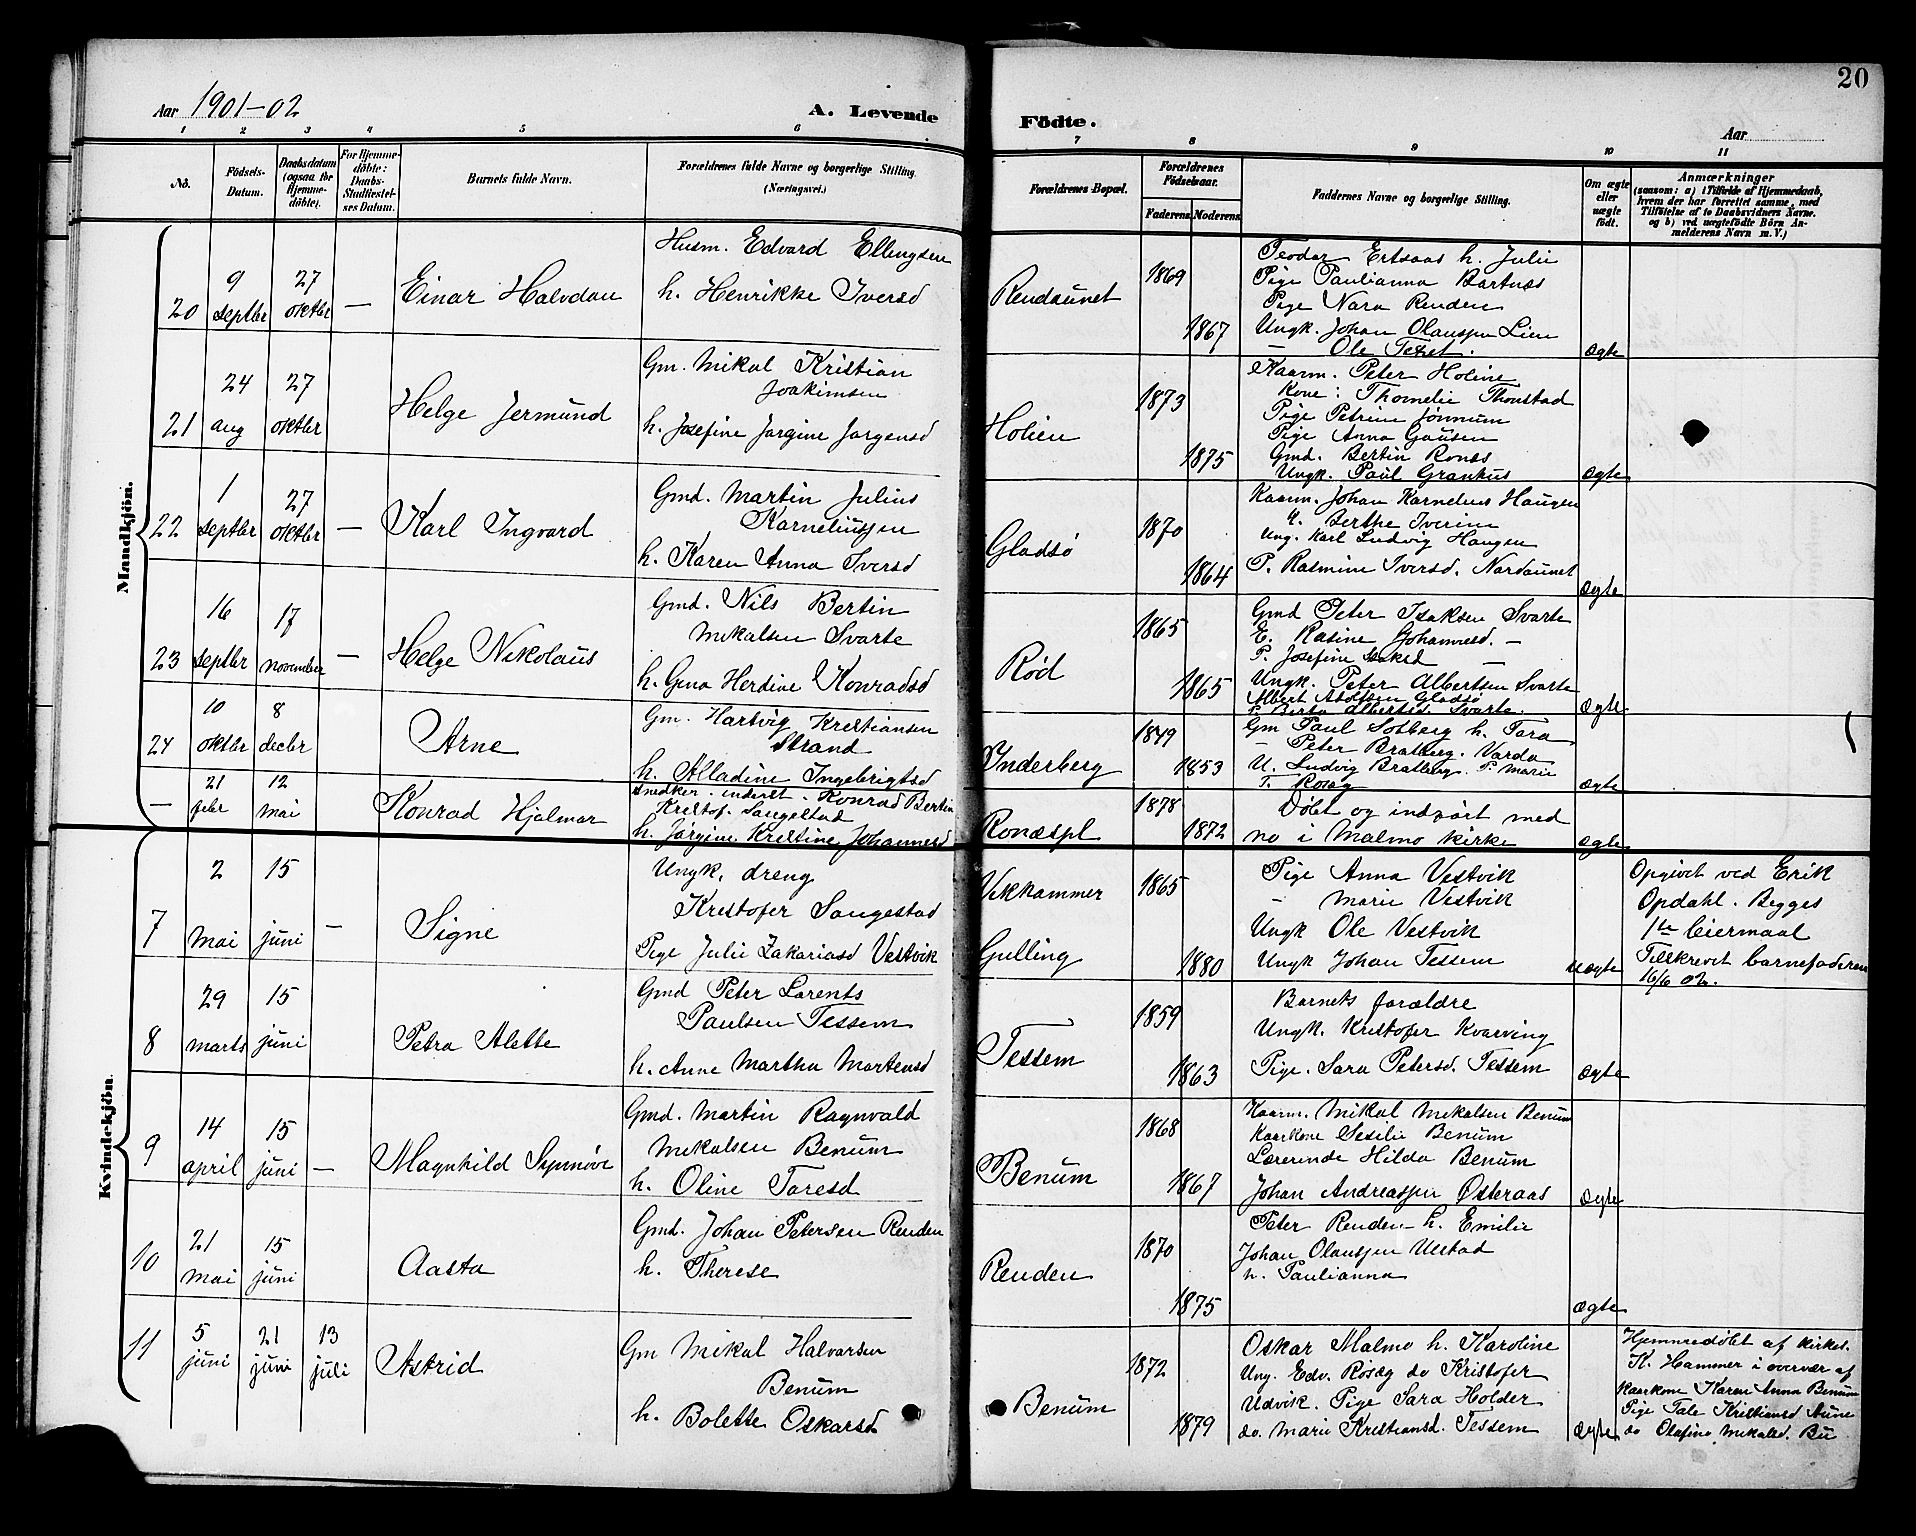 20
Aar 1901-02
A. Levende
Födte.
Aar
1 2 3 4 5 6 7 8 9 10 11
No.
Födsels-Datum.
Daabsdatum (ogsaa for Hjemme-döbte).
For Hjemme-döbte: Daabs-Stadfæstel-ses Datum.
Barnets fulde Navn.
Forældrenes fulde Navne og borgerlige Stilling. (Næringsvei.)
Forældrenes Bopæl.
Forældrenes Födselsaar.
Faderens. Moderens.
Faddernes Navne og borgerlige Stilling.
Om ægte eller uægte født.
Anmærkninger
(saasom: a) i Tilfælde af Hjemmedaab, hvem der har forrettet samme, med Tilföielse af to Daabsvidners Navne. og b) ved uægtefödte Börn An-melderens Navn m. V.)
Mandkjön.
20
9 septbr
27 oktbr
—
Einar Halvdan
Husm. Edvard Ellingsen
h. Henrikke Iversd
Rendaunet
1869
1867
Peodar Ertsaas h. Julie
Pige Paulianna Bartnes
Pige Nara Renden
Ungk. Johan Olaussen Lien
— Ole
ægte
21
24 aug
27 oktbr
Helge Jermund
Gm. Mikal Kristian
Joakimsen
h. Josefine Jørgine Jørgensd
Holien
1873
1875
Kaarm. Peter Holine
Kone: Thomelie Thonstad
Pige Petrine Jønnum
Pige Anna Gausen
Gmd. Bertin Ronæs
Ungk. Paul Grankus
ægte
22
1 septbr
27 oktbr
—
Karl Ingvard
Gmd. Martin Julius
Karneliussen
h. Karen Anna Iversd
Gladsø
1870
1864
Kaarm. Johan Karnelius Haugen
K. Berthe Iverine
Ung. Karl Ludvig Haugen
P. Rasmine Iversd. Nordaunet
ægte
23
16 septbr
17 november
—
Helge Nikolaus
Gmd. Nils Bertin
Mikalsen Svarte
h. Gina Herdine Konradsd
Rød
1865
1865
Gmd Peter Isaksen Svarte
E. Rasine Johannesd. —
P. Josefine Isaksd —
Ungk. Peter Albertsen Svarte
Albert Adolfsen Gladsø
P. Berta Albertsd Svarte.
ægte
24
10 oktbr
8 decbr
Arne
Gm. Hartvig Kristiansen
Strand
h. Alladine Ingebrigtsd
Inderberg
1849
1853
Gm Paul Solberg h. Tora
— Peter Bratberg. Varda
U. Ludvig Bratberg. P. Marie
T. Rosæg
ægte
—
21 febr
12 mai
Konrad Hjalmar
Snedker. inderst. Konrad Bertin
Kristof. Sangestad
h. Jørgine Kristine Johannesd
Ronæspl
1878
1872
Døbt og indført med
no i Malmo kirke
ægte
Kvindekjön.
7
2 mai
15 juni
—
Signe
Ungk. dreng
Kristofer Sangestad
Pige Julie Zakariasd Vestvik
Vikhammer
Gulling
1865
1880
Pige Anna Vestvik
— Marie Vestvik
Ungk Ole Vestvik
Ungk Johan Tessem
uægte
Opgivet ved Erik
Opdahl. Begges
1ste leiermaal
Tilskrevet barnefaderen
16/6 02.
8
29 marts
15 juni
Petra Alette
Gmd Peter Lorents
Paulsen Tessem
h. Anne Martha Mortensd
Tessem
1859
1863
Barnets forældre
Ungk. Kristofer Kvarving
Pige. Sara Petersd. Tessem
ægte
9
14 april
15 juni
—
Magnhild Synnøve
Gmd. Martin Ragnvald
Mikalsen Benum
h. Oline Toresd
Benum
1868
1867
Kaarm. Mikal Mikalsen Benum
Kaarkone Sesilie Benum
Lærerinde Hilda Benum
Johan Andreassen Østeraas
ægte
10
21 mai
15 juni
Aasta
Gmd. Johan Petersen Renden
h. Therese
Renden
1870
1875
Peter Renden h. Emilie
Johan Olaussen Ulstad
h. Paulianna
ægte
11
5 juni
21 juni
13 juli
Astrid
Gm Mikal Halvarsen
Benum
h. Bolette Oskarsd
Benum
1872
1879
Oskar Malmo h. Karoline
Ung. Edv. Rosæg do Kristofer
Udvik. Pige Sara Holder
do. Marie Kristiansd. Tessem
ægte
Hjemmedøbt af kirkes.
K. Hammer i overvær af
Kaarkone Karen Anna Benum
Pige Tale Kristiansd Aune
do Olafine Mikalsd. Bu